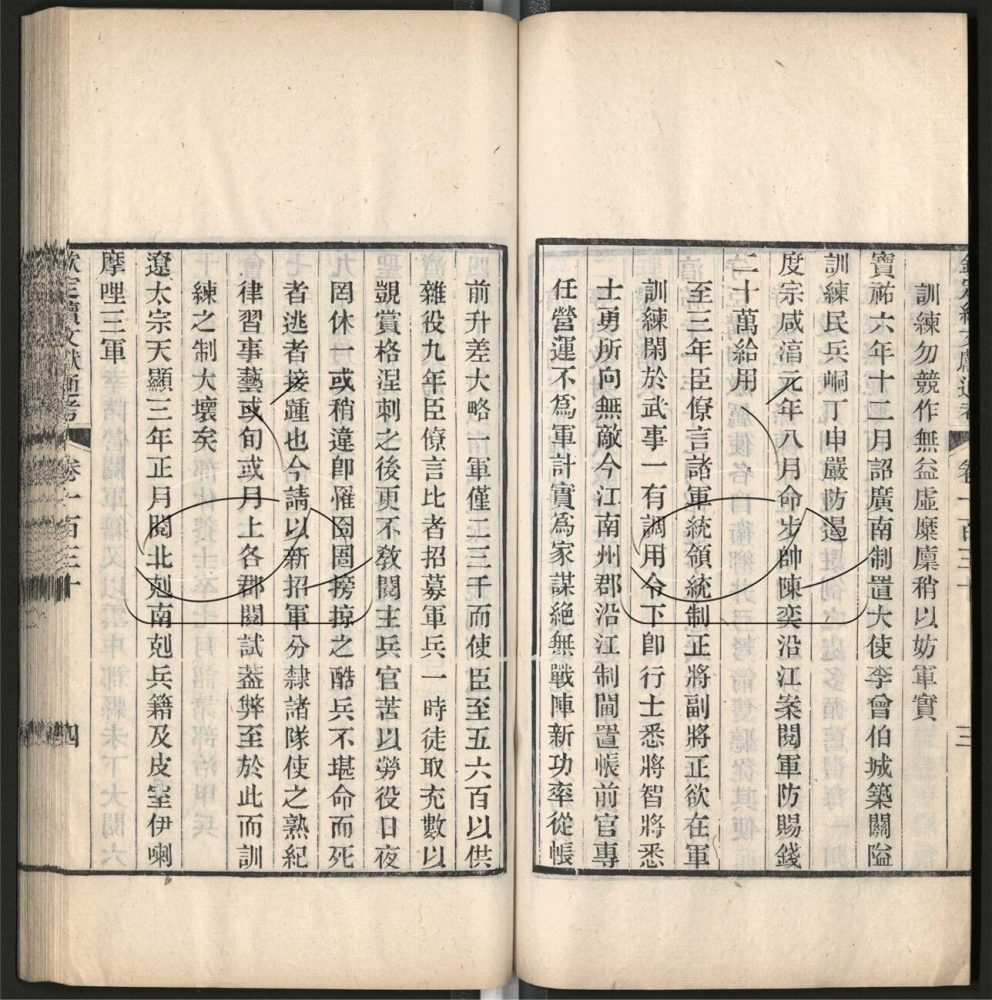 訓練勿競作無益虛糜廩稍以妨軍實
寶祐六年十二月詔廣南制置大使李曾伯城築關隘
訓練民兵峒丁申嚴防遏
度宗咸淳元年八月命步帥陳奕沿江案閱軍防賜錢
二十萬給用
至三年臣僚言諸軍統領統制正將副將正欲在軍
訓練閑於武事一有調用令下卽行士悉將智將悉
士勇所向無敵今江南州郡沿江制閫置帳前官專
任營運不爲軍計實爲家謀絕無戰陣新功率從帳
欽定續文獻通考 卷一百三十 三
前升差大略一軍僅二三千而使臣至五六百以供
雜役九年臣僚言比者招募軍兵一時徒取充數以
覬賞格涅刺之後更不敎閱主兵官苦以勞役日夜
罔休一或稍違卽罹囹圄搒掠之酷兵不堪命而死
者逃者接踵也今請以新招軍分隸諸隊使之熟紀
律習事藝或旬或月上各郡閱試葢弊至於此而訓
練之制大壞矣
遼太宗天顯三年正月閱北剋南剋兵籍及皮室伊喇
摩哩三軍
欽定續文獻通考 卷一百三十 四